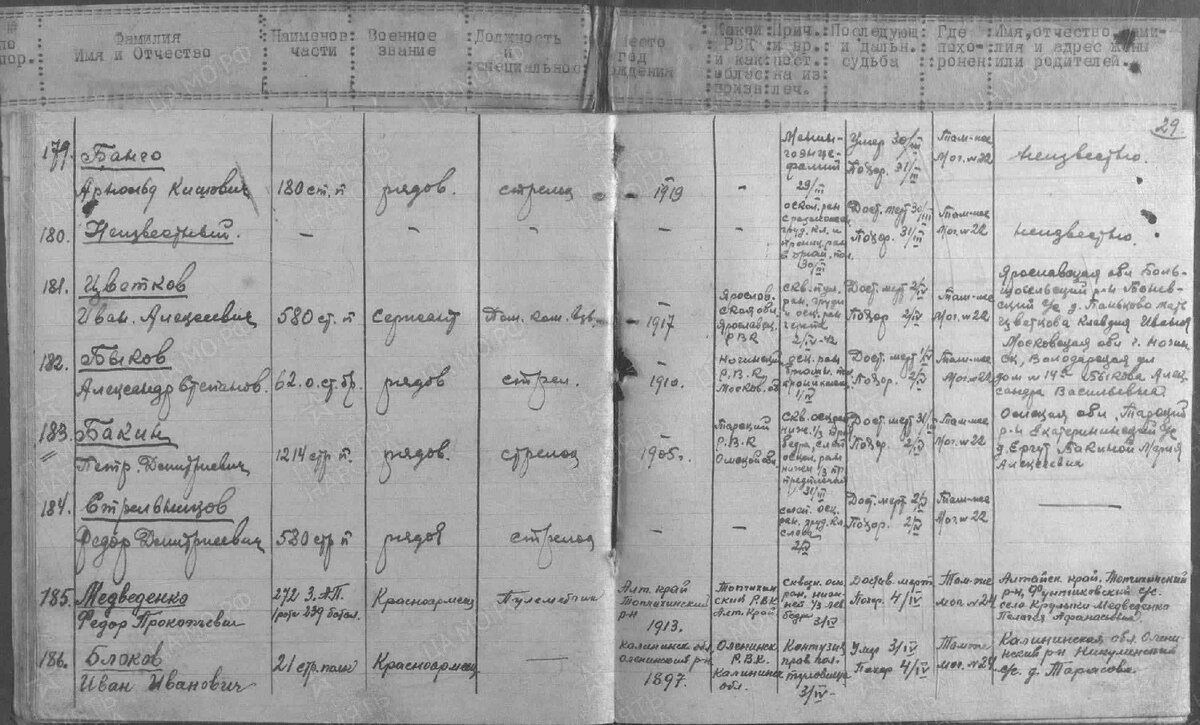 № по пор.
Фамилия Имя и Отчество
Наименов части
Военное звание
Должность и специальное
Место год рождения
Какой РВК и как област произв
Прич. и вр. пост. на из леч.
Последующ и дальн. судьба
Где похоронен
Имя, отчество, фамилия и адрес жены или родителей.
29
179. Банго
Арнольд 180 ст. п рядов. стрелок – 1919 –
29/III
Умер 30/III
Похор. 31/III
Там-же
Мог. № 22
неизвестно.
180. Неизвестный. – – – – –
30/III
Дост. мерт 30/III
Похор. 31/III
Там-же
Мог. № 22
неизвестно.
181. Цветков
Иван Алексеевич 580 ст. п Сержант Пом. ком. – 1917
Ярослав-
ская обл.
Ярославск.
Р.В.К
2/IV-42
Дост. мерт 2/IV
Похор. 2/IV
Там-же
Мог. № 22
Ярославская обл Боль-
шесельский р-н
с/с д. Паньково мать
Цветкова Клавдия Ивановна
182. Быков
Александр Степанов. 62 о. ст. бр. рядов стрел. – 1910.
Ногинский
Р.В.К
Москов. об
1/IV
Дост. мерт 1/IV
Похор. 2/IV
Там-же
Мог. № 22
Московская обл г. Ногин-
ск, Володарская ул
дом № Быкова Алек-
сандра Васильевна
183. Бакин
Петр Дмитриевич 1214 стр п. рядов. стрелок – 1905 г.
Тарский
Р.В.К
Омской об
31/III
Дост. мерт 31/III
Похор. 2/IV
Там-же
Мог. № 22
Омская обл. Тарский
р-н Екатерининский с/с
д. Ергут Бакиной Мария
Алексеевна
184. Стрельников
Федор Дмитриевич 580 стр п рядов стрелок – –
2/IV
Дост. мерт 2/IV
Похор. 2/IV
Там-же
Мог. № 22
185. Медведенко
Федор Прокопьевич
272 З.АП.
1 рота 239 батал.
Красноармеец Пулеметчик
Алт. край
Топчихинский
р-н
1913.
Топчихин
ский Р.ВК
Алт. Край
Сквозн. оск.
ран. ниж-
ней 1/3 лев
бедра
3/IV
Достав. мертв
Похор. 4/IV
Там-же
мог. № 24
Алтайск. край. Топчихинский
р-н, Фунтиковский с/с.
село Крутики Медведенко
Пелагея Афанасьевна
186. Блоков
Иван Иванович
21 стр. полк Красноармеец –
Калининск. обл
Оленинский р-н
1897.
Оленинск
Р.В.К.
Калининск
обл.
Контузия
прав пол.
туловища
3/IV-
Умер 3/IV
Похор 4/IV
Там же
мог. № 24
Калининская обл Олени
нский р-н Никулинский
с/с. д. Тарасово.